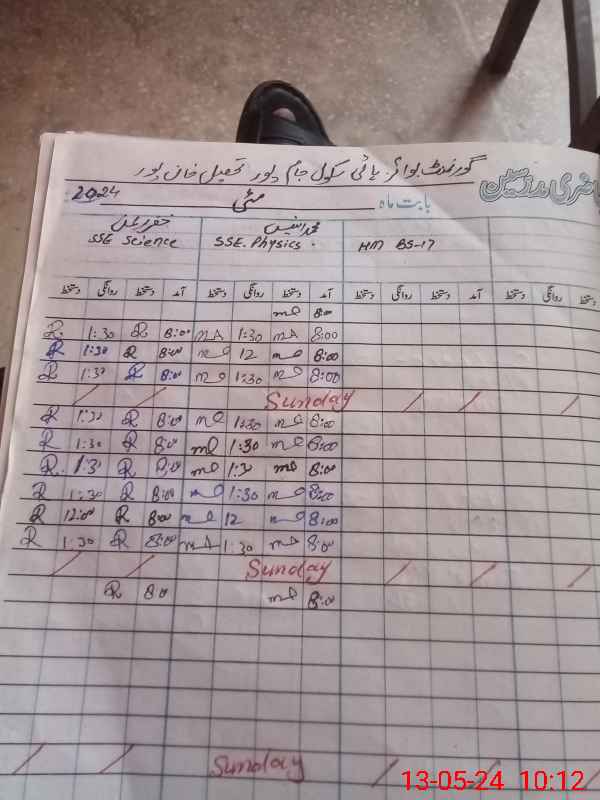 گورنمنٹ بوائز ہائی سکول جام پور تحصیل خان پور
حاضری مدرسین
بابت ماہ مئی 2024
محمد انیس
SSE Science SSE. Physics. HM BS-17
دستخط روانگی دستخط آمد دستخط روانگی دستخط آمد دستخط روانگی دستخط آمد دستخط روانگی دستخط
8:00
R 1:30 R 8:00 1:30 8:00
R 1:30 R 8:00 12 8:00
R 1:30 R 8:00 1:30 8:00
Sunday
R 1:30 R 8:00 1:30 8:00
R 1:30 R 8:00 1:30 8:00
R 1:30 R 8:00 1:30 8:00
R 1:30 R 8:00 1:30 8:00
R 12:00 R 8:00 12 8:00
R 1:30 R 8:00 1:30 8:00
Sunday
R 8:00 8:00
Sunday
13-05-24 10:12